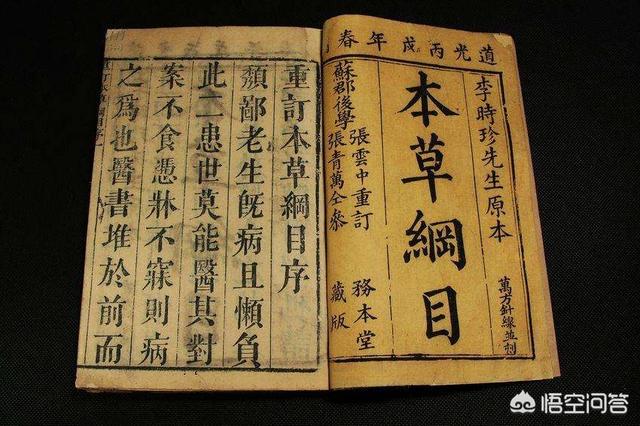 道光丙戌年春
李時珍先生原本
本草綱目
萬方針線並刻
蘇郡後學
張雲中重訂
張青萬仝參
務本堂
藏版
重訂本草綱目序
頹鄙老生旣病且懶負
此二患世莫能醫其對
案不食慿牀不寐則病
之爲也醫書堆於前而
悟空问答